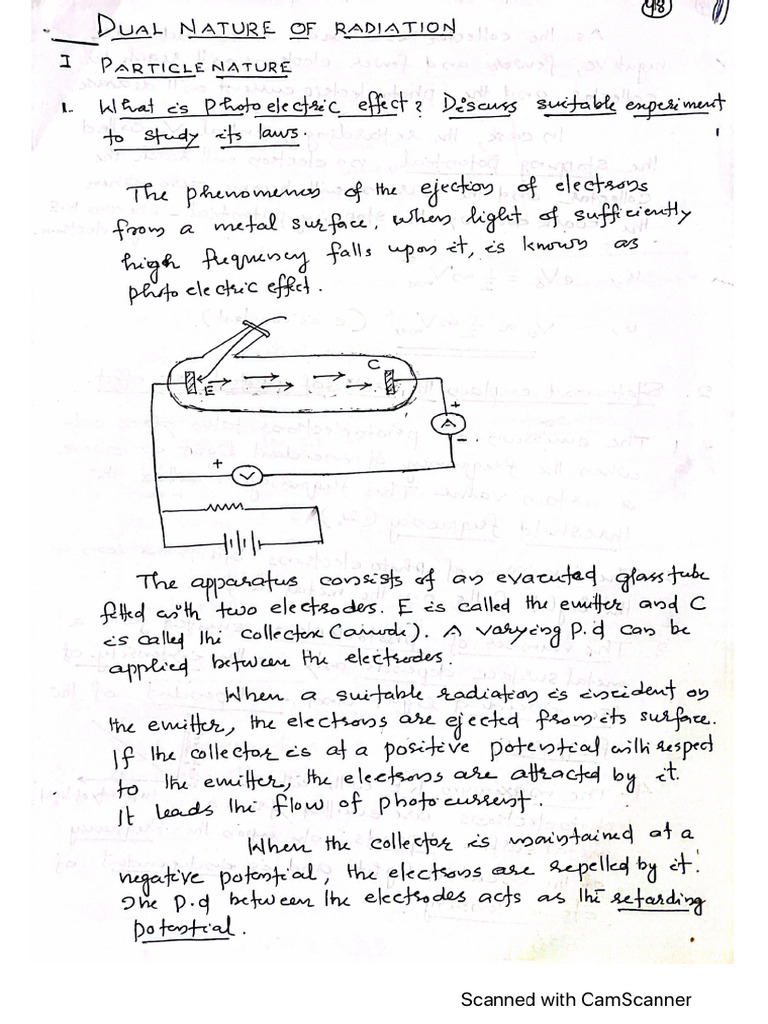 48
DUAL NATURE OF RADIATION
I PARTICLE NATURE
1. What is Photo electric effect? Discuss suitable experiment
to study its laws.
The phenomenon of the ejection of electrons
from a metal surface, when light of sufficiently
high frequency falls upon it, is known as
photo electric effect.
C
E
+
A
-
+
V
The apparatus consists of an evacuted glass tube
fitted with two electrodes. E is called the emitter and C
is called the collector (anode). A varying P.d can be
applied between the electrodes.
When a suitable radiation is incident on
the emitter, the electrons are ejected from its surface.
If the collector is at a positive potential with respect
to the emitter, the electrons are attracted by it.
It leads the flow of photo current.
When the collector is maintained at a
negative potential, the electrons are repelled by it.
The P.d between the electrodes acts as the retarding
potential.
Scanned with CamScanner